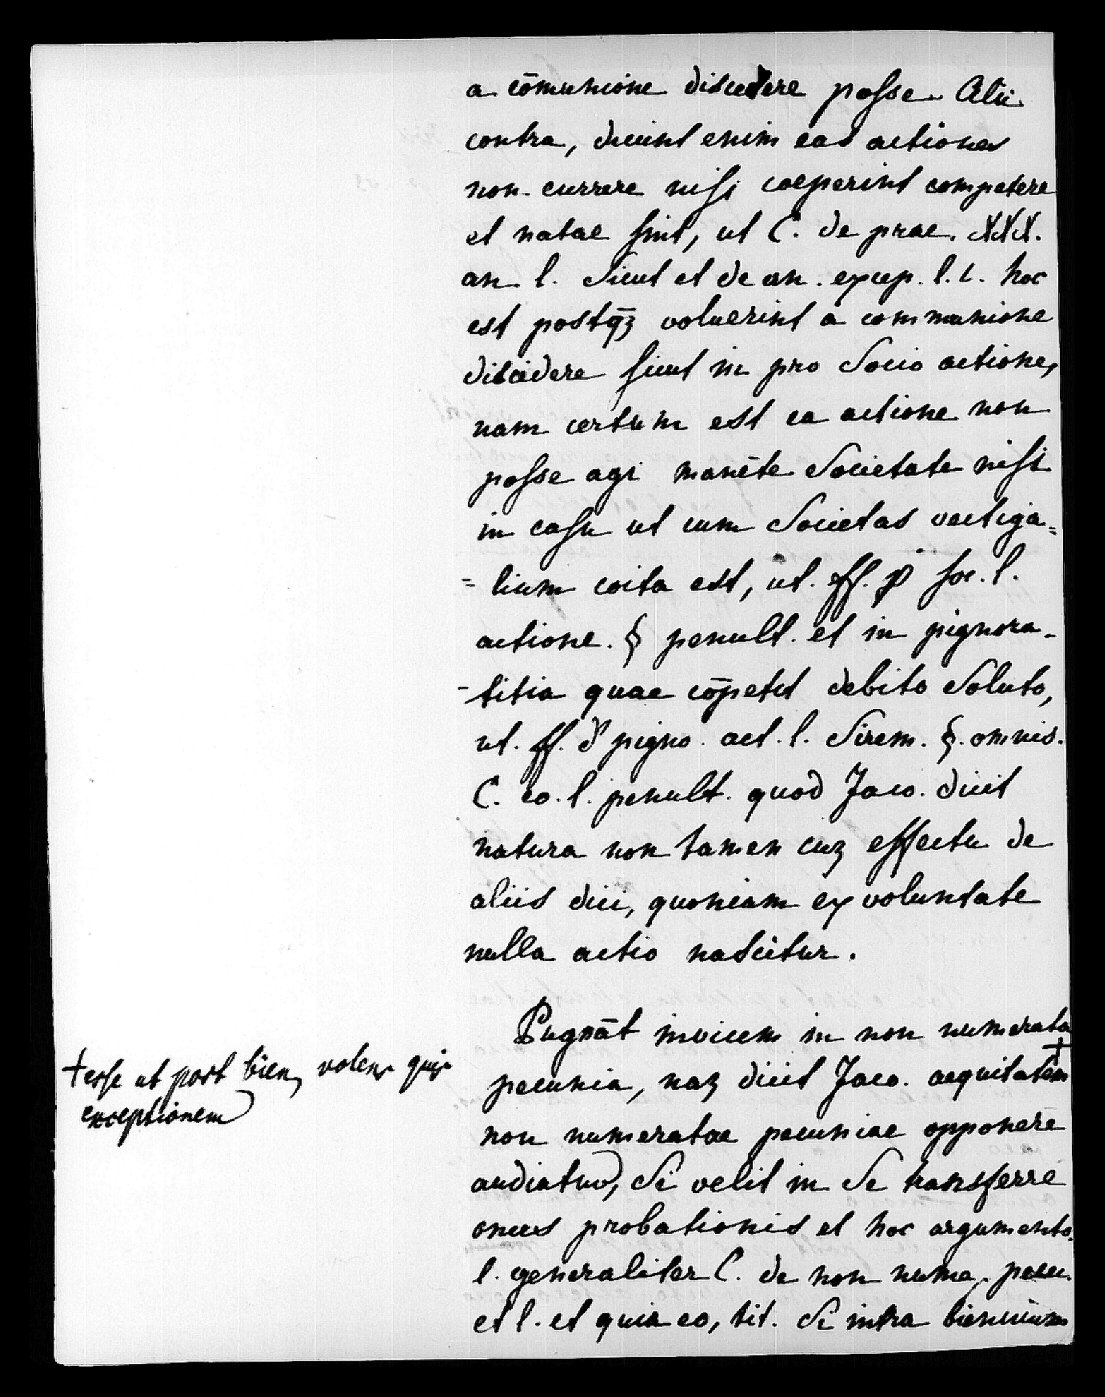 a cōmunione discedere posse. Alii
contra, dicunt enim eas actiones
non currere nisi coeperint competere
et natae sint, ut C. de prae. XXX.
an l. sicut et de an. excep. l. 1. hoc
est postqʒ voluerint a communione
discedere sicut in pro Socio actione,
nam certum est ea actione non
posse agi manēte Societate nisi
in casu ut cum Societas vectiga=
=lium coita est, ut. ff. p soc. l.
actione. § penult. et in pignora-
-titia quae cōpetit debito Soluto,
ut. ff. d pigno. act. l. Sirem. §. omnis.
C. eo. l. penult. quod Jaco. dicit
natura non tamen cuʒ effectu de
aliis dici, quoniam ex voluntate
nulla actio nascitur.
Pugnāt invicem in non numerata
pecunia, naʒ dicit Jaco. aequitatem +
non numeratae pecuniae opponere
audiatur, Si velit in Se transferre
onus probationis et hoc argumento.
l. generaliter C. de non nume. pecu.
et l. et quia eo, tit. Si intra biennium
+ esse ut post bien, volens quis
exceptionem